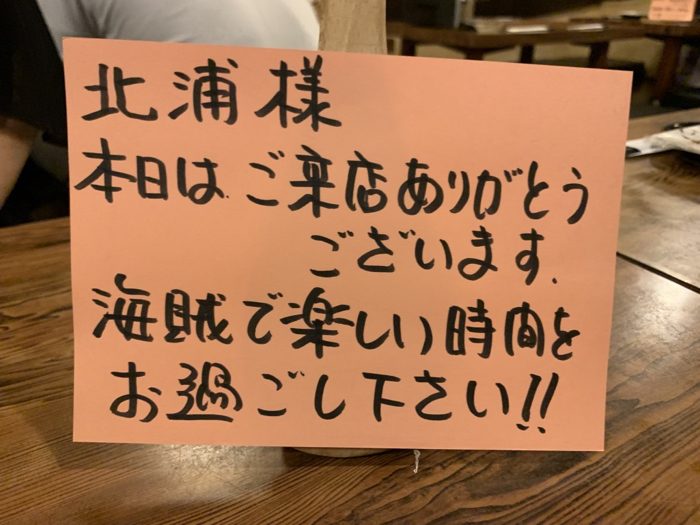 北浦様
本日は.ご来店ありがとう
ございます.
海賊で楽しい時間を
お過ごし下さい!!